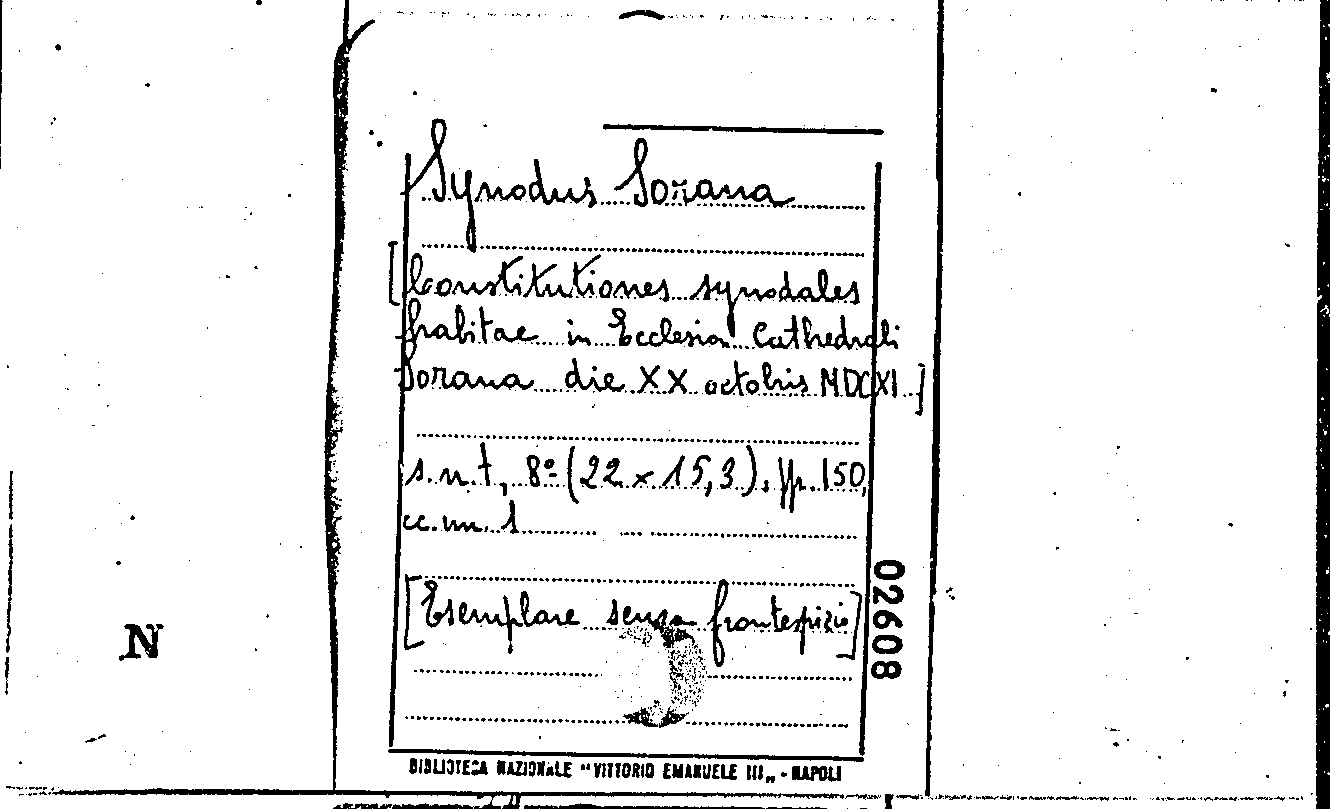 Synodus Sorana
[Constitutiones synodales
habitae in Ecclesia Cathedrali
Sorana die XX octobris MDCXI]
s.n.t., 8º (22 x 15,3), pp. 150,
cc. nn. 1
[Esemplare senza frontespizio]
02608
N
BIBLIOTECA NAZIONALE "VITTORIO EMANUELE III„ - NAPOLI